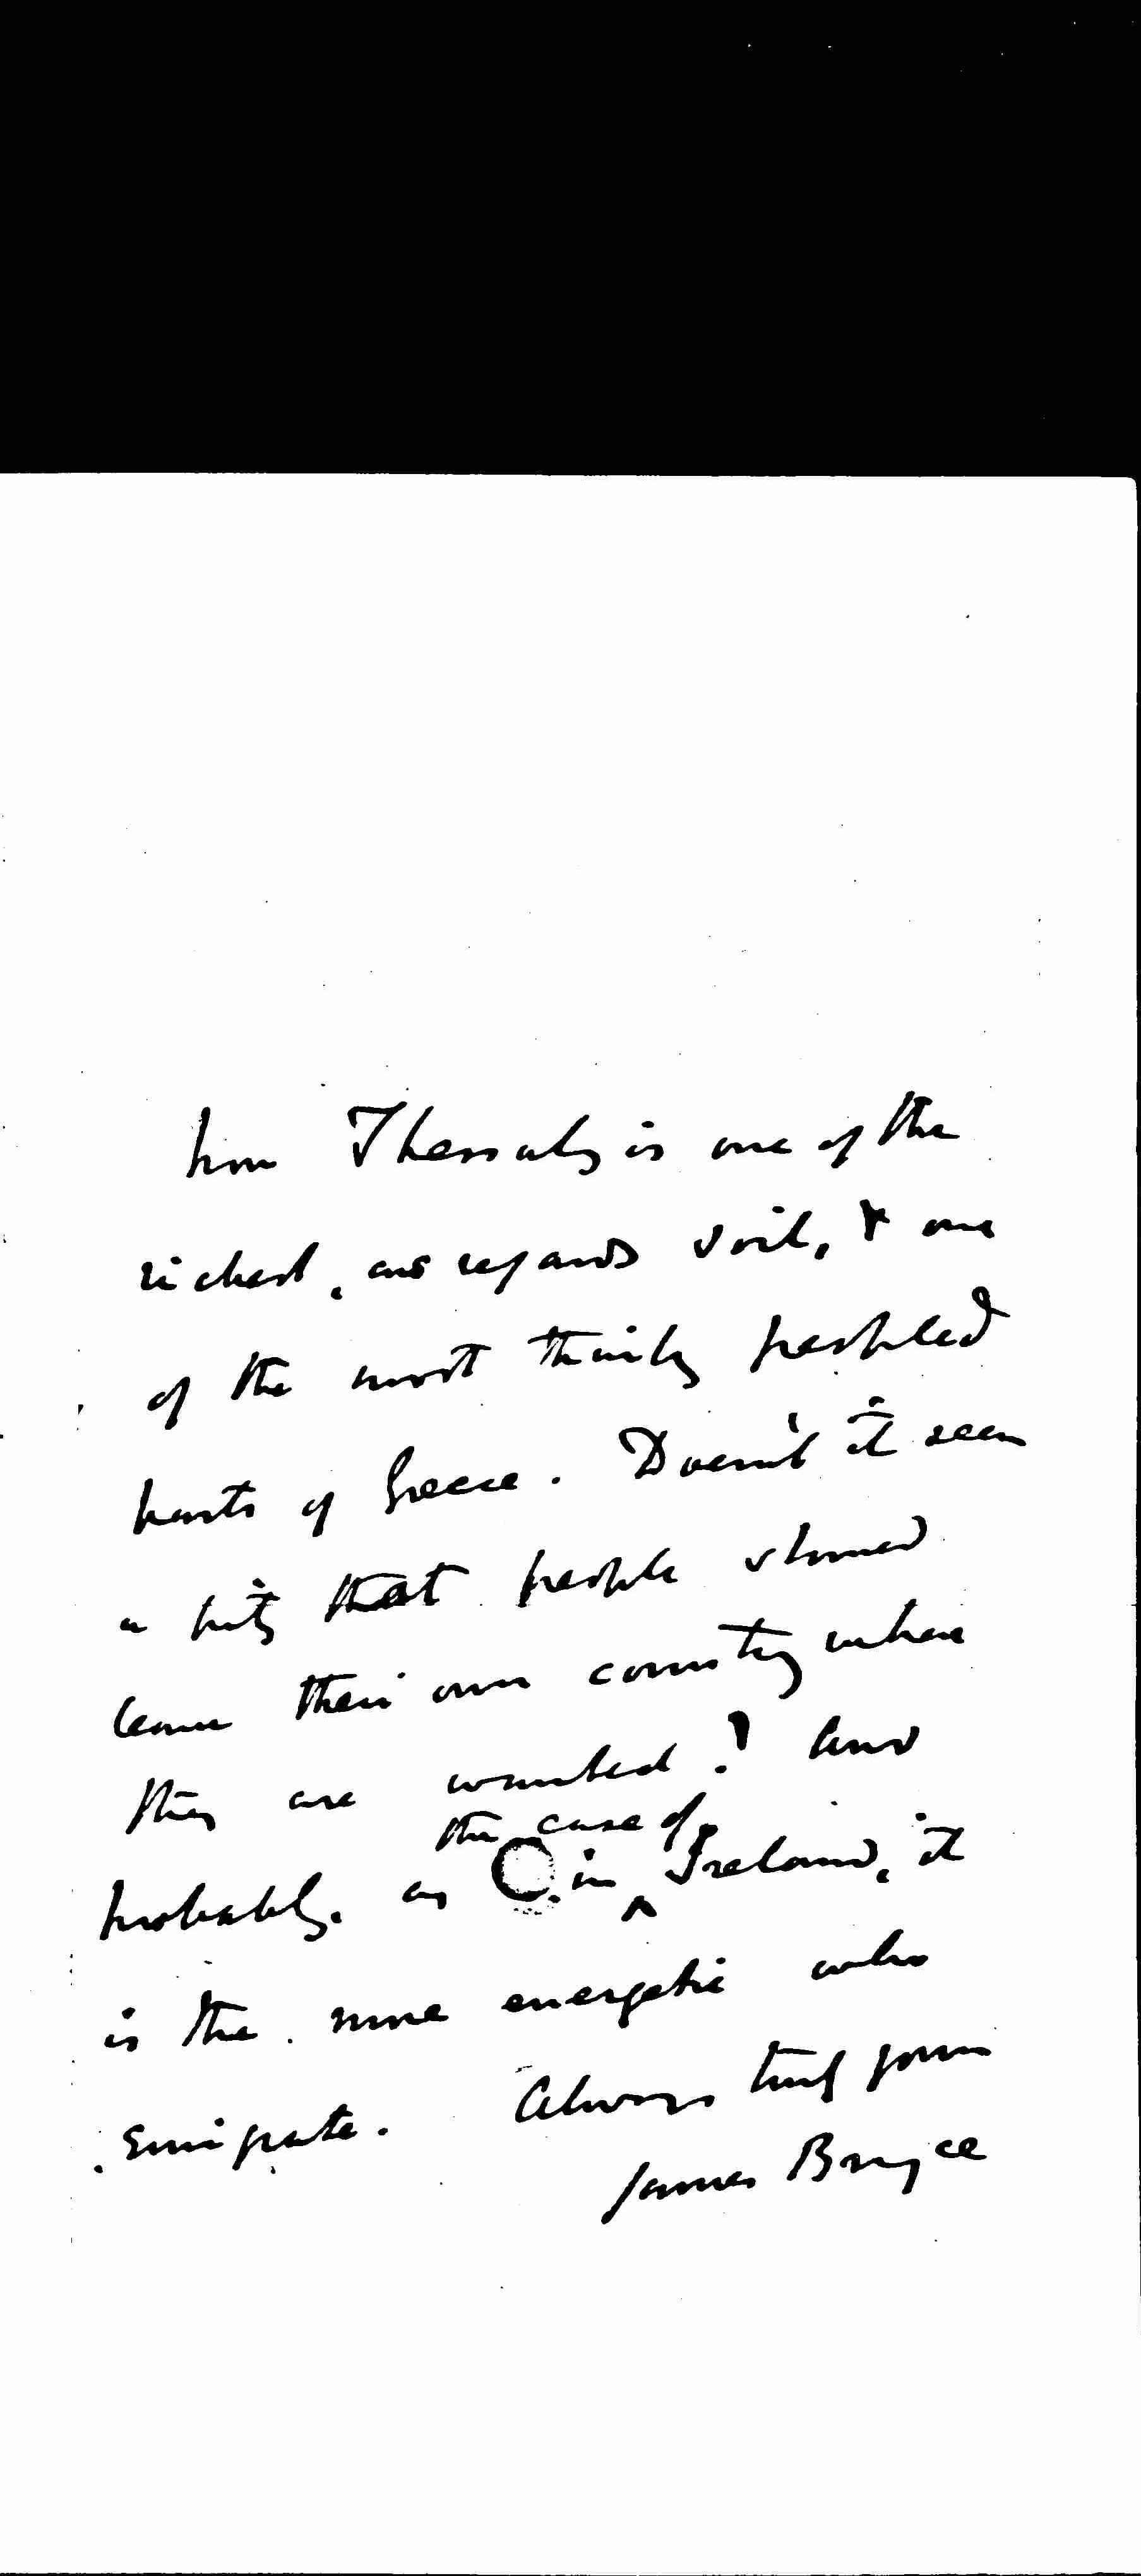 how Thessaly is one of the
richest, as regards soil, & one
of the most thinly peopled
parts of Greece. Doesn't it seem
a pity that people should
leave their own country where
they are wanted? And
the case of
probably, as in Ireland, it
is the more energetic who
emigrate. Always truly yours
James Bryce